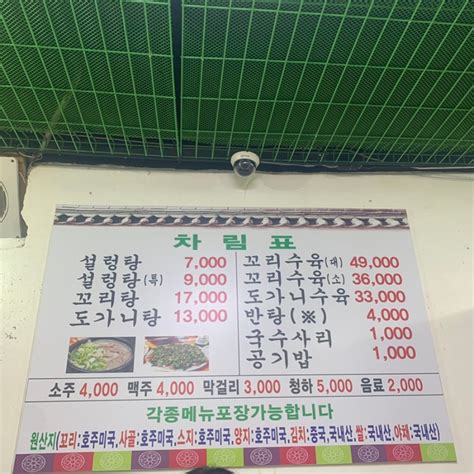 차림표
설렁탕 7,000
설렁탕(특) 9,000
꼬리탕 17,000
도가니탕 13,000
꼬리수육(대) 49,000
꼬리수육(소) 36,000
도가니수육 33,000
반탕(※) 4,000
국수사리 1,000
공기밥 1,000
소주 4,000 맥주 4,000 막걸리 3,000 청하 5,000 음료 2,000
각종메뉴포장가능합니다
원산지(꼬리:호주미국,사골:호주미국,스지:호주미국,양지:호주미국,김치:중국,국내산,쌀:국내산,야채:국내산)